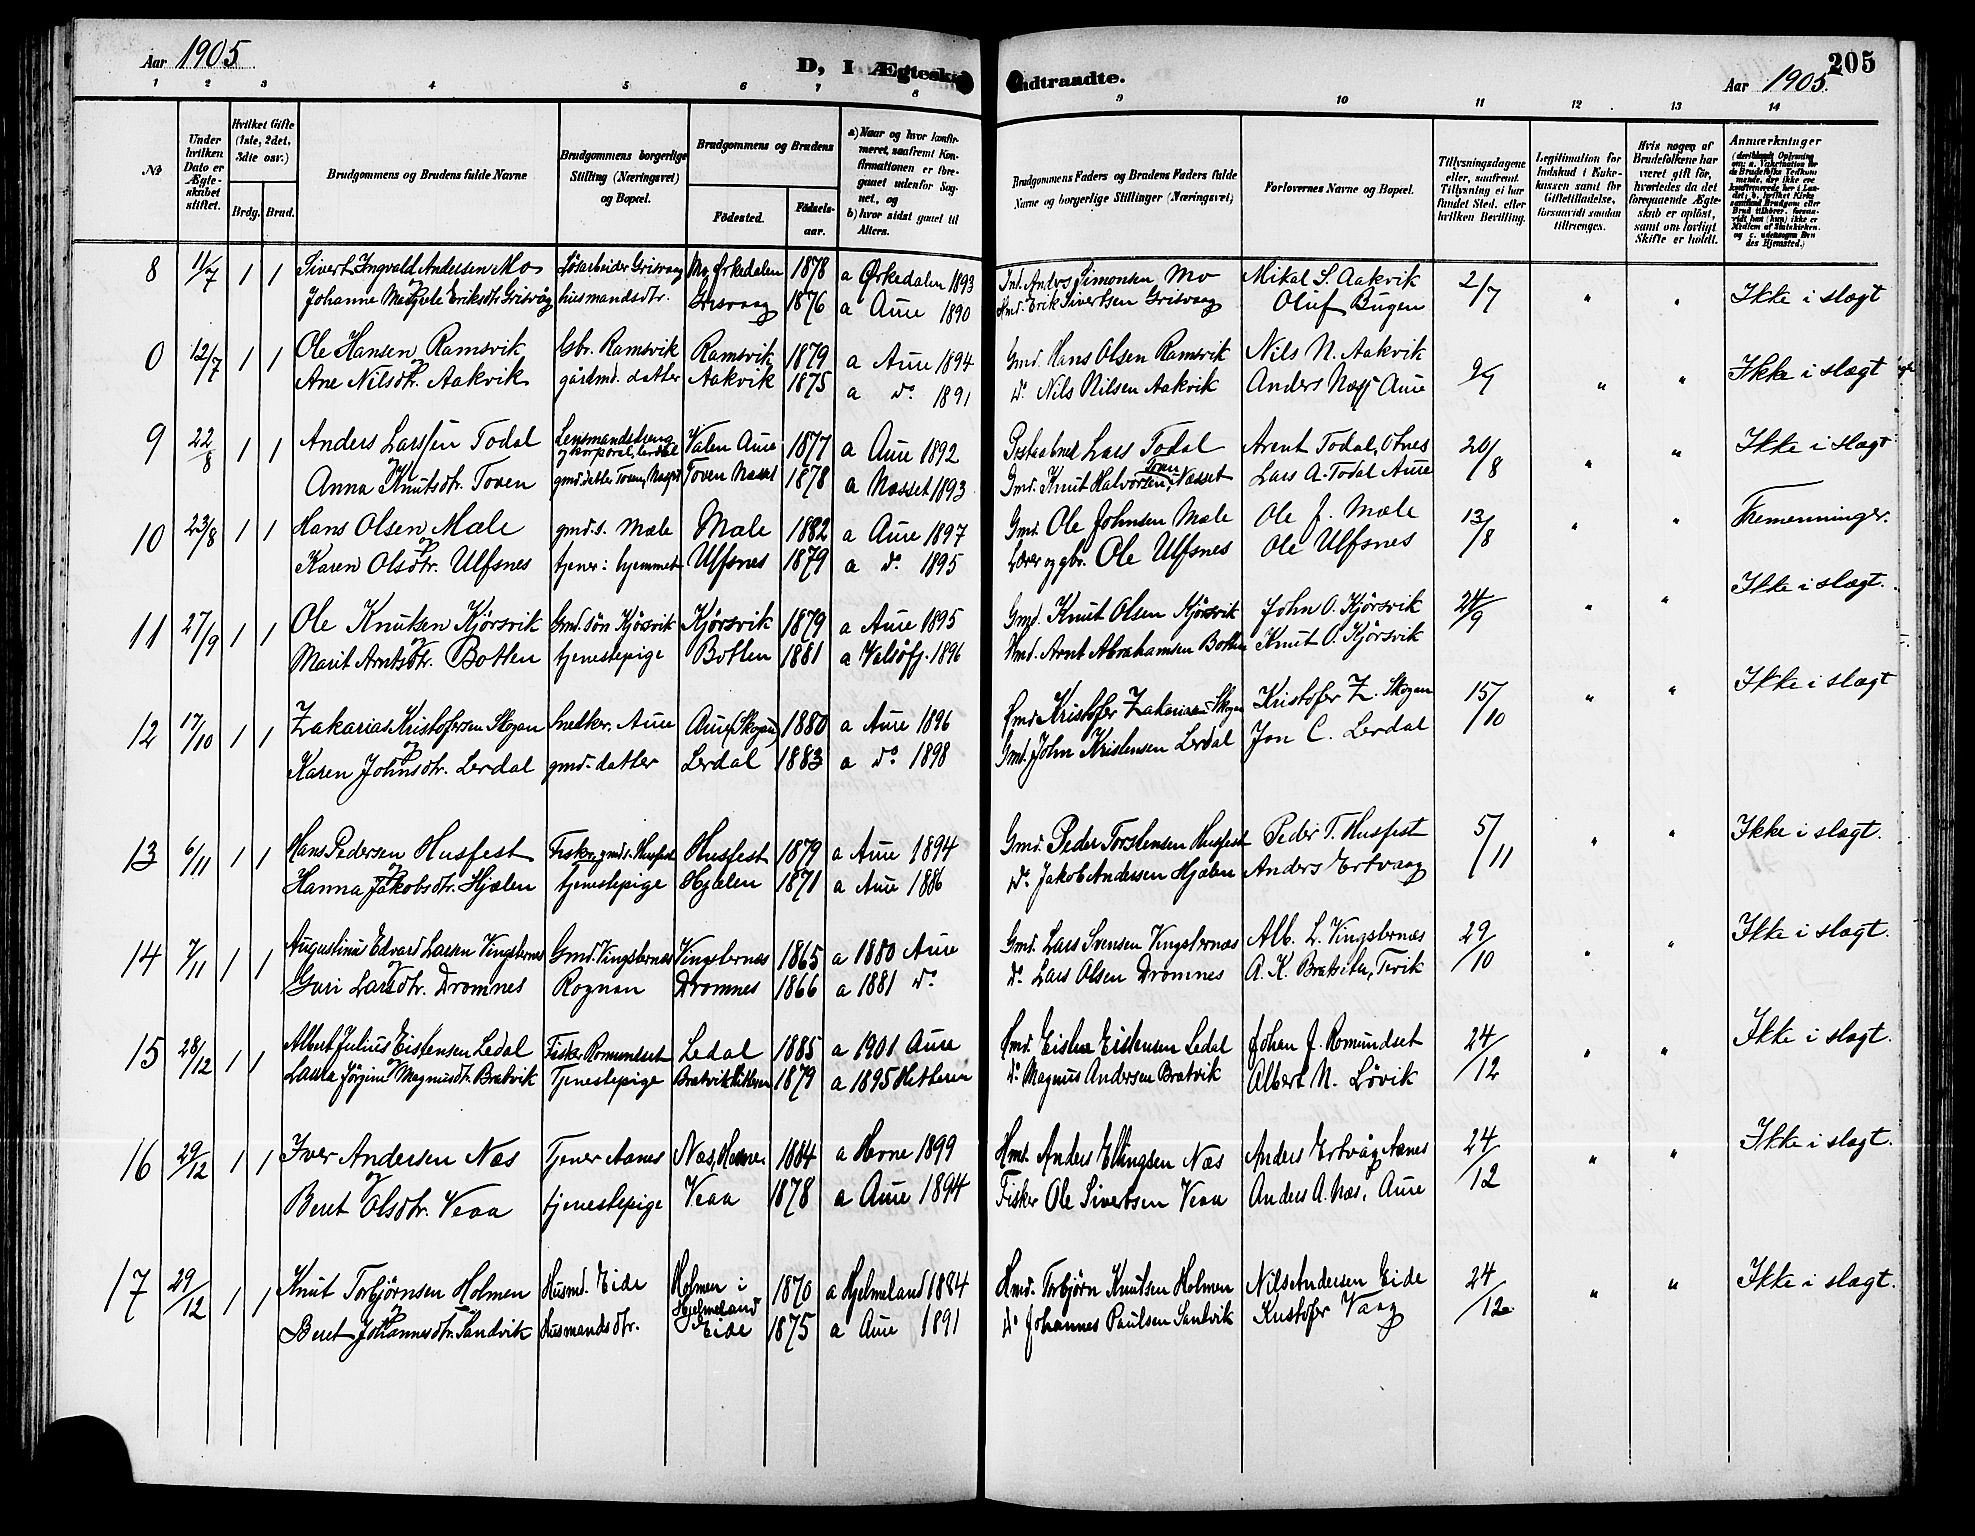 Aar 1905.
D, I Ægtesk
ndtraadte.
205
Aar 1905.
1 2 3 4 5 6 7 8 9 10 11 12 13 14
No
Under hvilken Dato er Ægteskabet stiftet.
Hvilket Gifte (1ste, 2det, 3die osv.)
Brdg. Brud.
Brudgommens og Brudens fulde Navne
Brudgommens borgerlige Stilling (Næringsvei) og Bopæl.
Brudgommens og Brudens
Fødested.
Fødselsaar.
a) Naar og hvor konfirmeret, saafremt Konfirmationen er foregaaet udenfor Sognet, og
b) hvor sidst gaaet til Alters.
Brudgommens Faders og Brudens Faders fulde Navne og borgerlige Stillinger (Næringsvei)
Forlovernes Navne og Bopæl.
Tillysningsdagene eller, saafremt Tillysning ei har fundet Sted, efter hvilken Bevilling.
Legitimation for Indskud i Enkekassen samt for Giftetilladelse, forsaavidt saadan tiltrænges.
Hvis nogen af Brudefolkene har været gift før, hvorledes da det foregaaende Ægteskab er opløst, samt om lovligt Skifte er holdt.
Anmærkninger
8 11/7 1 1 Sivert Ingvald Andersen Mo Løsarbeider Grisvaag Mo, Ørkedalen 1878 a Ørkedalen 1893 Ind. Anders Simonsen Mo Mikal S. Aakvik 2/7 " " Ikke i slægt
og
Johanne Eriksdtr. Grisvåg husmandsdtr. Grisvaag 1876 a Aure 1890 Hmd. Erik Sivertsen Grisvaag Oluf Bugen
0 12/7 1 1 Ole Hansen Ramsvik Gbr. Ramsvik Ramsvik 1879 a Aure 1894 Gmd. Hans Olsen Ramsvik Nils N. Aakvik 9/7 " " Ikke i slægt
og
Ane Nilsdtr. Aakvik gårdmd. datter Aakvik 1875 a do 1891 do Nils Nilsen Aakvik Anders Næss Aure
9 22/8 1 1 Anders Larssen Todal Lensmandsdreng og korporal, Lerdal Valen Aure 1877 a Aure 1892 Lars Todal Arnt Todal, Otnes 20/8 " " Ikke i slægt
og
Anna Knutsdtr. Toven gmd. datter Toven, Næsset Toven Næsset 1878 a Næsset 1893 Gmd. Knut Halvorsen Toven i Næsset Lars A. Todal Aure
10 23/8 1 1 Hans Olsen Mæle gmd.s. Mæle Mæle 1882 a Aure 1897 Gmd. Ole Johnsen Mæle Ole J. Mæle 13/8 " " Tremenninger.
og
Karen Olsdtr. Ulfsnes tjener i hjemmet Ulfsnes 1879 a do 1895 Lærer og gbr. Ole Ulfsnes Ole Ulfsnes
11 27/9 1 1 Ole Knutsen Kjørsvik Gmd. søn Kjørsvik Kjørsvik 1879 a Aure 1895 Gmd. Knut Olsen Kjørsvik John O. Kjørsvik 24/9 " " Ikke i slægt.
og
Marit Arntsdtr. Botten tjenestepige Botten 1881 a Valsøfj. 1896 Hmd. Arnt Abrahamsen Botten Knut O. Kjørsvik
12 17/10 1 1 Zakarias Kristofersen Skogan Snedker. Aure Aure (Skogan) 1880 a Aure 1896 Kristofer Zakariassen Skogan Kristofer Z. Skogan 15/10 " " Ikke i slægt
og
Karen Johnsdtr. Lerdal gmd. datter Lerdal 1883 a do 1898 Gmd. John Kristensen Lerdal Jon C. Lerdal
13 6/11 1 1 Hans Pedersen Husfest Fisker, gmd.s. Husfest Husfest 1879 a Aure 1894 Gmd. Peder Torstensen Husfest Peder T. Husfest 5/11 " " Ikke i slægt.
og
Hanna Jakobsdtr. Hjælen tjenestepige Hjælen 1871 a Aure 1886 do Jakob Andersen Hjælen Anders Ertvaag
14 7/11 1 1 Augustinus Edvard Larsen Vingsternæs Gmd. Vingsternæs Vingsternæs 1865 a 1880 Aure Gmd. Lars Svensen Vingsternæs Alb. L. Vingsternæs 29/10 " " Ikke i slægt.
og
Guri Larsdtr. Dromnes Rognan Dromnes 1866 a 1881 do do Lars Olsen Dromnes A. K. Bratseter, Tevik
15 28/12 1 1 Albert Julius Eistensen Ledal Fisker Romundset Ledal 1885 a 1901 Aure Eisten Eistensen Ledal Johan J. Romundset 24/12 " " Ikke i slægt.
og
Laura Jørgine Magnusdtr. Bratvik Tjenestepige Bratvik Hitteren 1879 a 1895 Hitteren do Magnus Andersen Bratvik Albert N. Løvik
16 29/12 1 1 Iver Andersen Næs Tjener Aanes Næs, Hemne 1884 a Hevne 1899 Hmd. Anders Ellingsen Næs Anders Ertvåg Aanes 24/12 " " Ikke i slægt.
og
Beret Olsdtr. Veaa tjenestepige Veaa 1878 a Aure 1894 Fisker Ole Sivertsen Veaa Anders A. Næs, Aure
17 29/12 1 1 Knut Torbjørnsen Holmen Husmd. Eide Holmen i Hjelmeland 1870 a Hjelmeland 1884 Hmd. Torbjørn Knutsen Holmen Nils Andersen Eide 24/12 " " Ikke i slægt.
og
Beret Johannesdtr. Sandvik Husmandsdtr. Eide 1875 a Aure 1891 do Johannes Paulsen Sandvik Kristofer Vaag